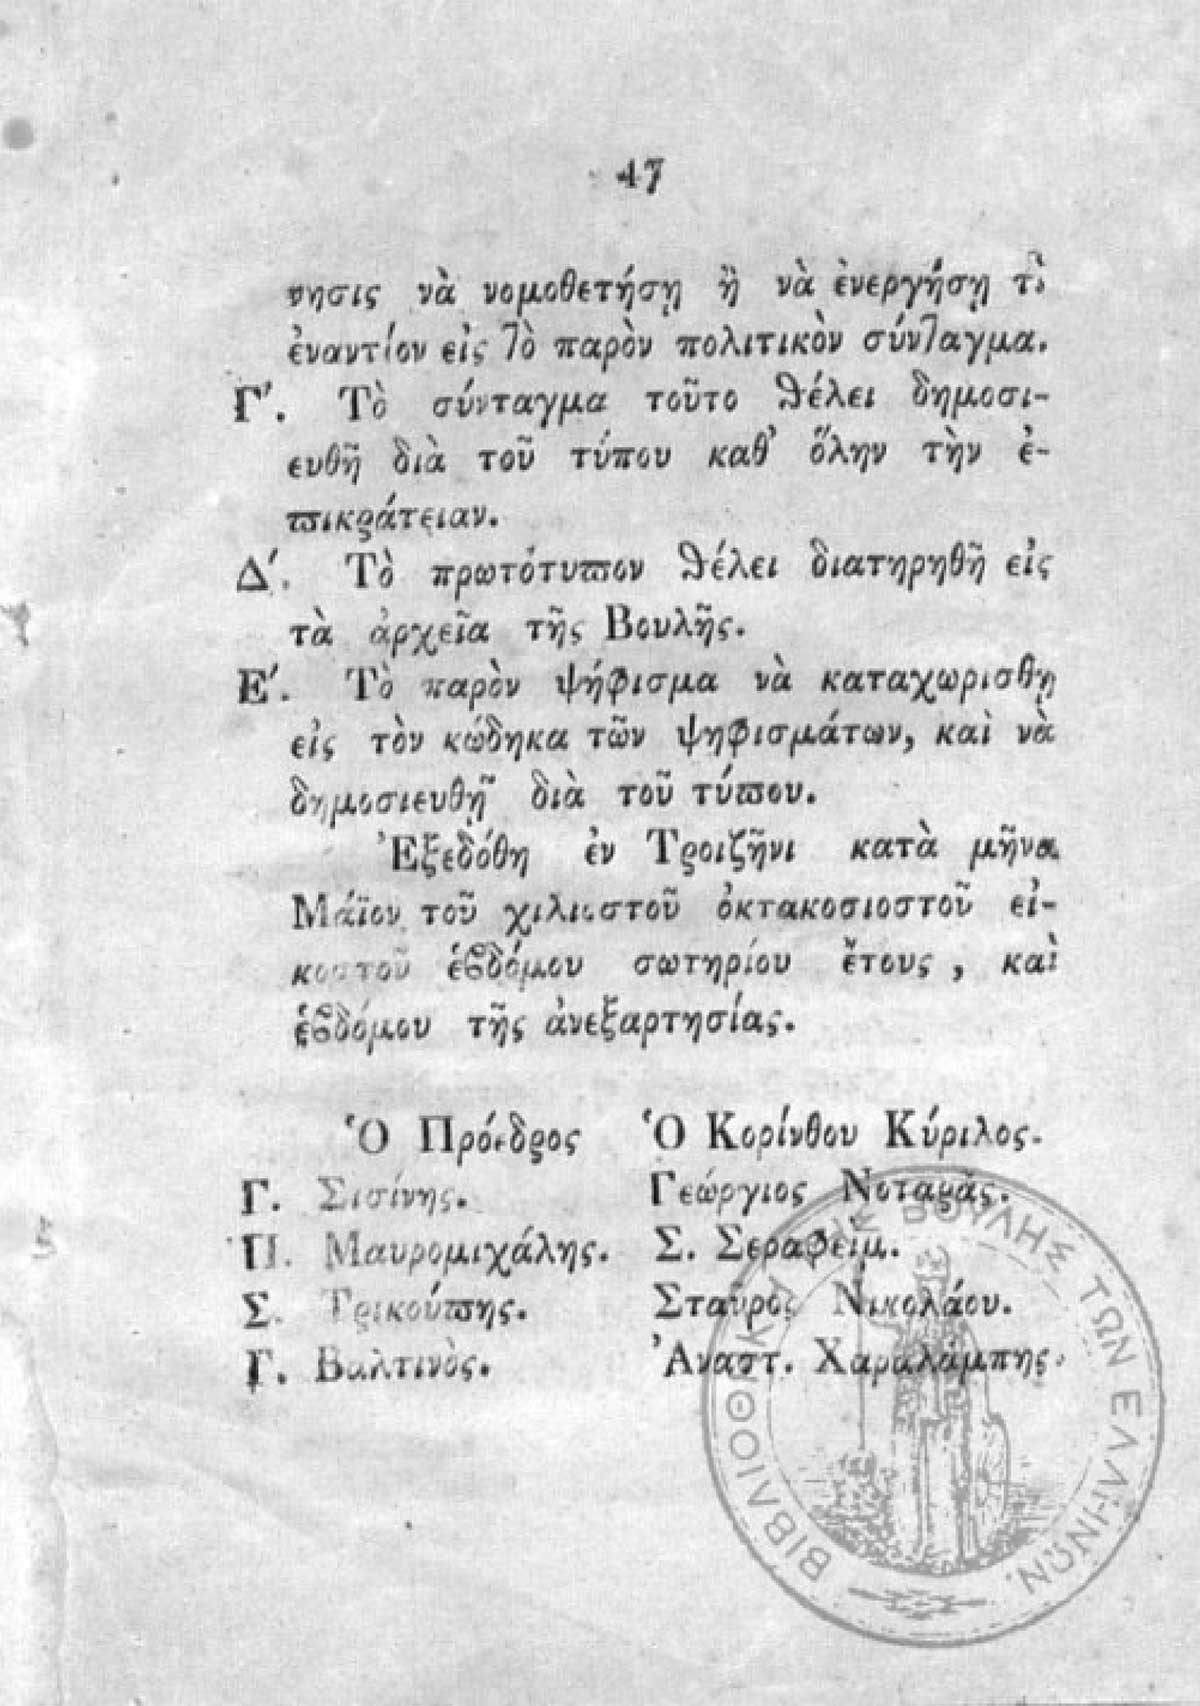 47
νησις νὰ νομοθετήσῃ ἢ νὰ ἐνεργήσῃ τὶ
ἐναντίον εἰς τὸ παρὸν πολιτικὸν σύνταγμα.
Γ'. Τὸ σύνταγμα τοῦτο θέλει δημοσι-
ευθῆ διὰ τοῦ τύπου καθ' ὅλην τὴν ἐ-
πικράτειαν.
Δ'. Τὸ πρωτότυπον θέλει διατηρηθῆ εἰς
τὰ ἀρχεῖα τῆς Βουλῆς.
Ε'. Τὸ παρὸν ψήφισμα νὰ καταχωρισθῃ
εἰς τὸν κώδηκα τῶν ψηφισμάτων, καὶ νὰ
δημοσιευθῇ διὰ τοῦ τύπου.
Ἐξεδόθη ἐν Τροιζῆνι κατὰ μῆνα
Μάϊον τοῦ χιλιοστοῦ ὀκτακοσιοστοῦ εἰ-
κοστοῦ ἑβδόμου σωτηρίου ἔτους, καὶ
ἑβδόμου τῆς ἀνεξαρτησίας.
Ὁ Πρόεδρος
Γ. Σισίνης.
Π. Μαυρομιχάλης.
Σ. Τρικούπης.
Γ. Βαλτινὸς.
Ὁ Κορίνθου Κύριλος.
Γεώργιος Νοταρᾶς.
Σ. Σεραφεὶμ.
Σταῦρος Νικολάου.
Ἀναστ. Χαραλάμπης.
ΒΙΒΛΙΟΘΗΚΗ ΤΗΣ ΒΟΥΛΗΣ ΤΩΝ ΕΛΛΗΝΩΝ.